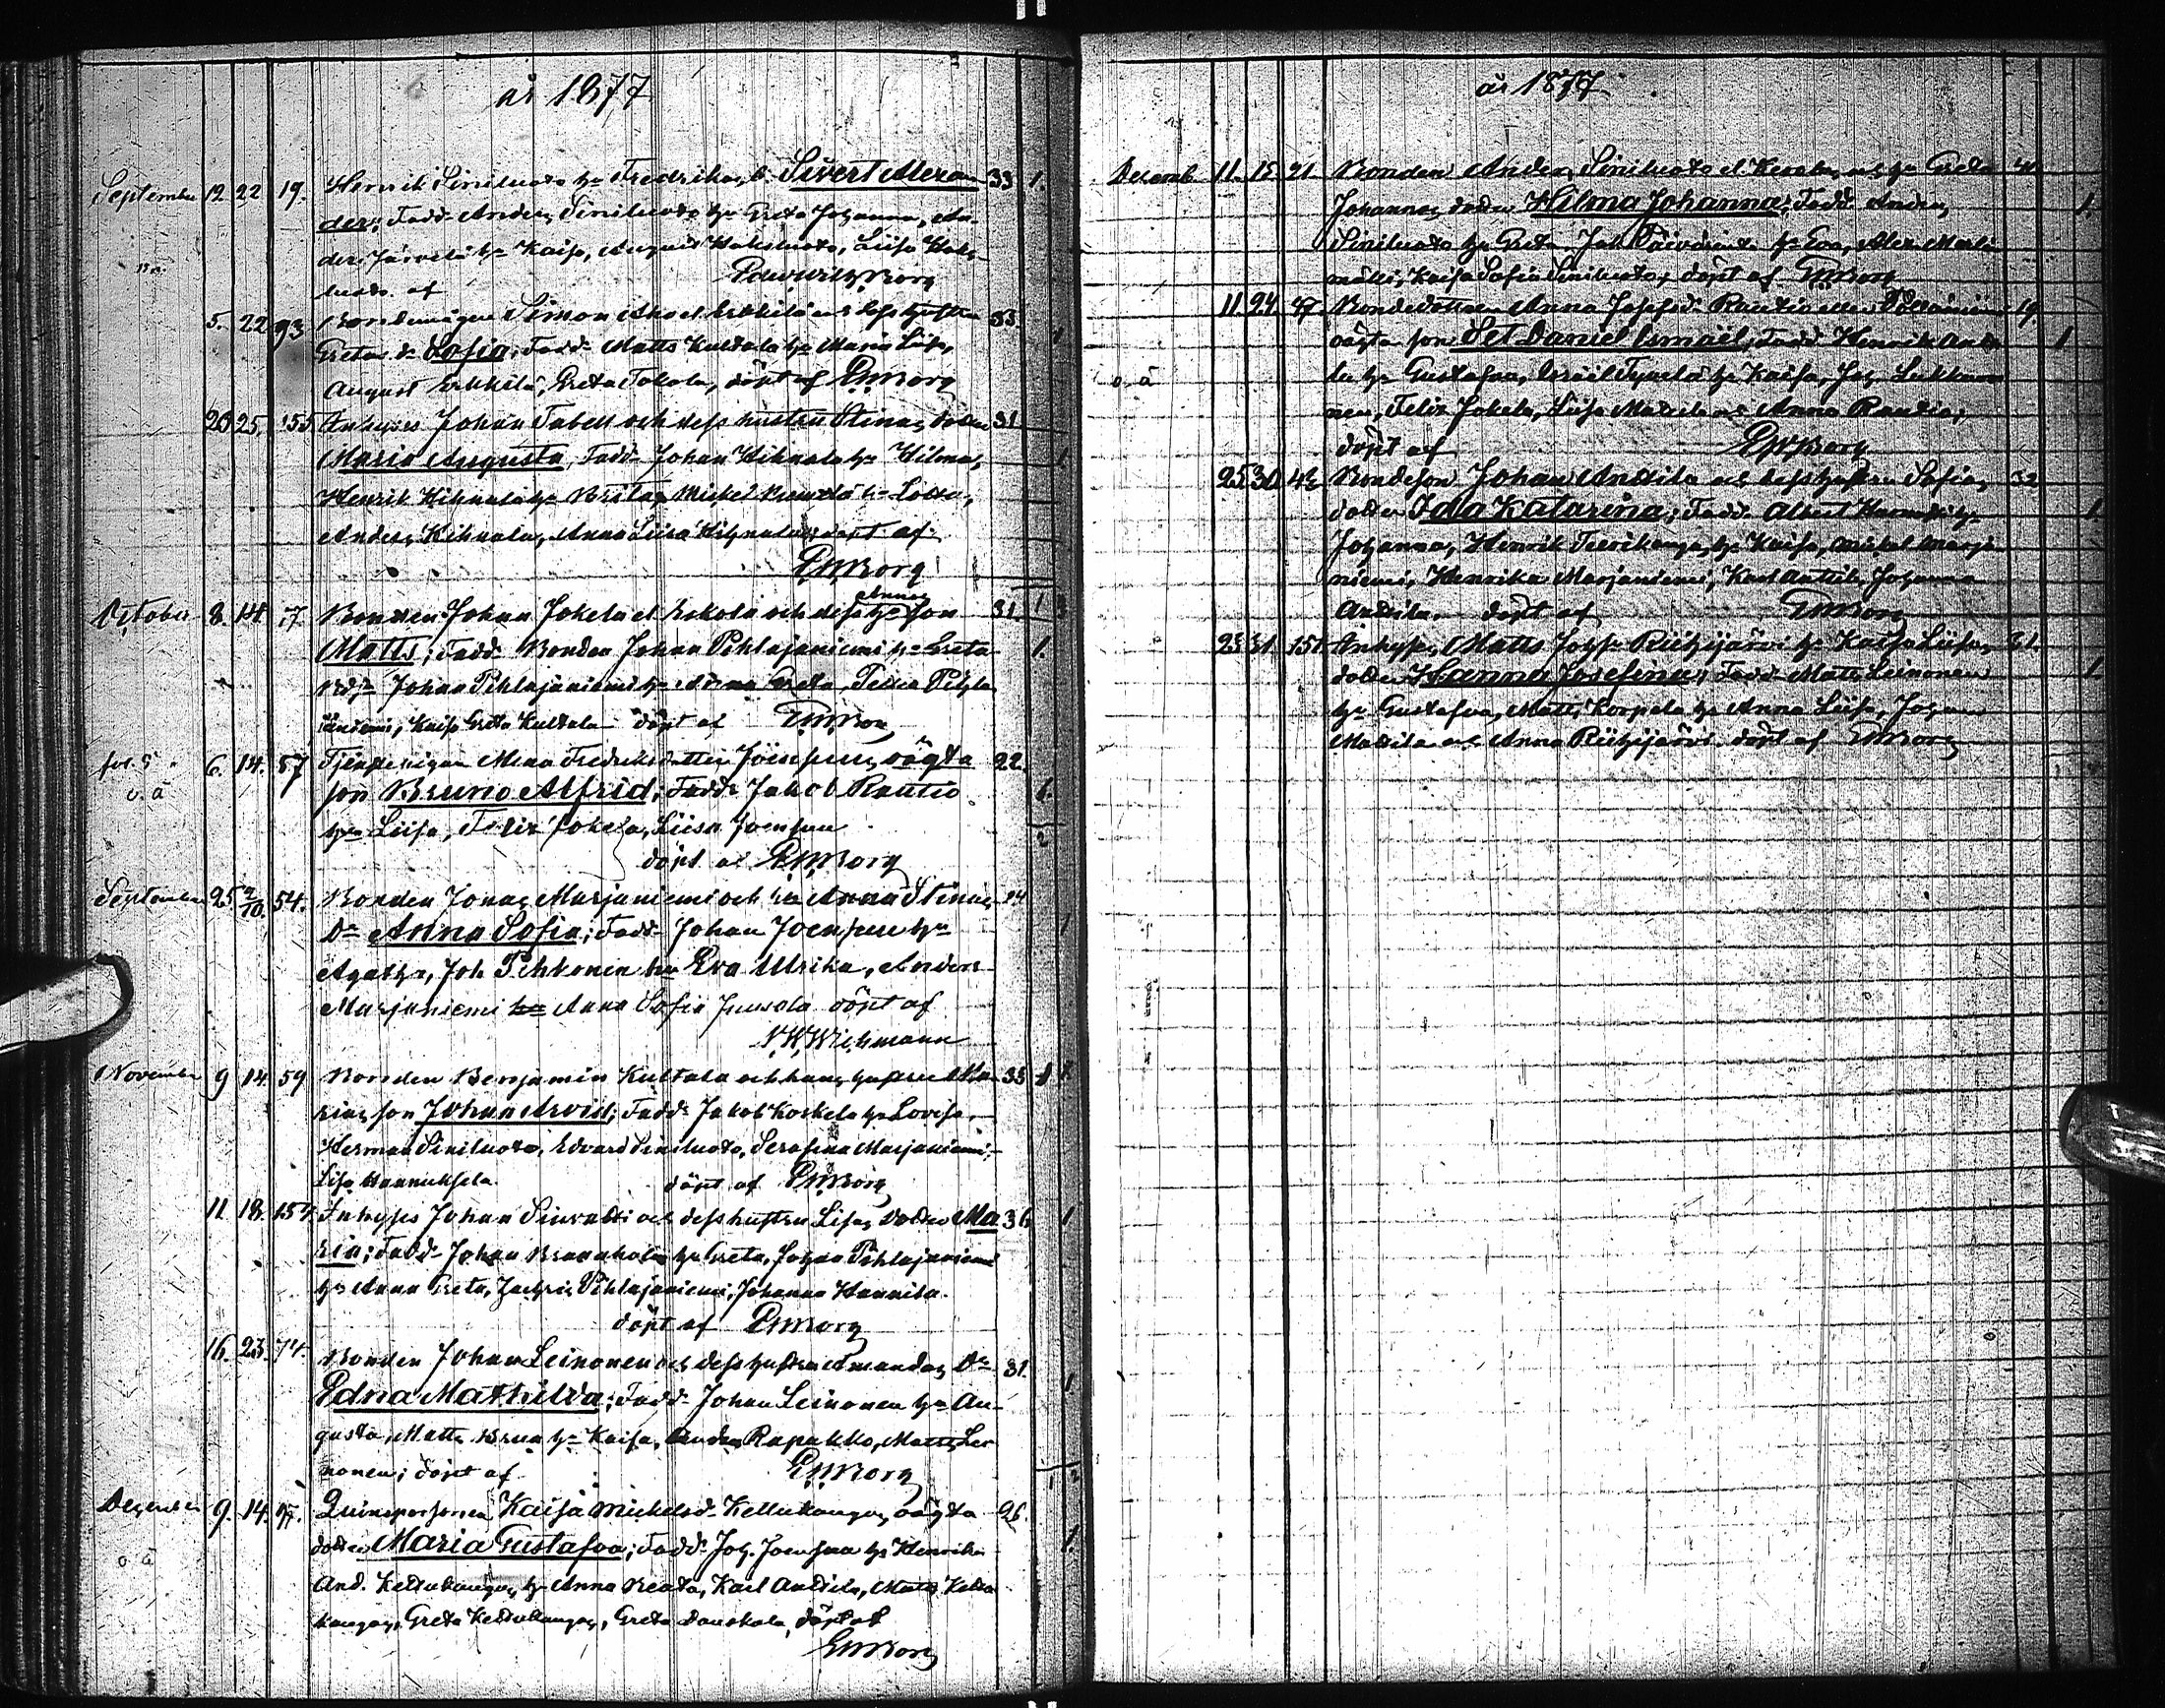 år 1877
September 12. 22 19. Henrik Siniluoto hu Fredrika, s. Sivert Alexan- 33 1.
der; Fadd. Anders Siniluoto hu Greta Johanna, An-
ders Järvelä hu Kaisa, August Hakoluoto, Liisa Hako-
luoto. af Edv. Wilh. Borg
5. 22 93 Bondemågen Simon Aho el. Erkkilä och dess hustru 33
Gretas dr Sofia; Fadd. Matts Kultala hu Maria Liisa, 1
August Erkkilä, Greta Tokola, döpt af EWBorg
20 25. 155 Inhyses Johan Tabell och dess hustru Stinas dotter 31
Maria Augusta, Fadd. Johan Kihnala hu Hilma,
Henrik Kihnala hu Brita, Mickel hu Lotta,
Anders Kihnala, Anna Liisa Kihnala; döpt af
EWBorg
October 8. 14. 7 Bonden Johan Jokela el. Eskola och dess hu Annas son 31. 1 3
Matts; Fadd. Bonden Johan Pihlajaniemi hu Greta 1.
Johan Pihlajaniemi hu Anna Greta, Pihla-
janiemi, Kaisa Greta Kultala döpt af EWBorg
6. 14. 57 Tjenstepigan Mina Fredriksdotter Joensuus oägta 22.
o. ä son Bruno Alfrid; Fadd. Jakob Rautio 1.
hu Liisa, Felix Jokela, Liisa Joensuu 2
döpt af EWBorg
September 25 2/10. 54. Bonden Jonas Marjaniemi och hu Anna Stinas 24
dr Anna Sofia; Fadd. Johan Joensuu hu 1
Agatha, Joh. Pihkonen hu Eva Ulrika, Anders
Marjaniemi hu Anna Sofia Juusola döpt af
Wichmann
November 9 14. 59 Bonden Benjamin Kultala och hans hustru Ma- 33 1
rias son Johan Arvid; Fadd. Jakob Koskela hu Lovisa,
Herman Siniluoto, Edvard Siniluoto, Serafina Marjaniemi,
Lisa Hannuksela. döpt af EWBorg
11. 18. 157 Inhyses Johan och dess hustru Lisas dotter Ma 36 1
ria; Fadd. Johan Brannholm hu Greta, Johan Pihlajaniemi
hu Anna Greta, Zachris Pihlajaniemi, Johanna Hannila.
döpt af EWBorg
16. 23. 74. Bonden Johan Leinonen och dess hustru Amandas dr 31.
Edna Mathilda; Fadd. Johan Leinonen hu Au- 1
gusta, Matts hu Kaisa, Anders Rapakko, Matts Lei-
nonen; döpt af EWBorg
December 9. 14. Qvinspersonen Kaisa Mickelsd. Kellukangas oägta 26.
o ä dotter Maria Gustafva; Fadd. Joh. Joensuu hu Henrika 1.
And. Kellukangas hu Anna Beata, Karl Anttila, Matts Kellu
kangas, Greta Kellukangas, Greta döpt af
EWBorg
år 1877
Decemb. 11. 15. 21 Bonden Anders Siniluoto el. Kerola och hu Greta
Johannas dotter Hilma Johanna; Fadd. Anders 1.
Siniluoto hu Greta, Jak. Päivärinta hu Eva, Alex.
Kaisa Sofia Siniluoto, döpt af EWBorg
11. 24. 47. Bondedottren Anna Josefsd. Rautio 19.
oägta son Set Daniel Ismaël; Fadd. Henrik 1
o. ä hu Gustafva, Israël hu Kaisa, Joh. Leukku-
nen, Felix Jokela, Liisa Mattila och Anna Rautio,
döpt af EWBorg
25. 30. 42 Bondeson Johan Anttila och dess hustru Sofias 32
dotter Ida Katarina; Fadd. Albert hu 1.
Johanna, Henrik Teerikangas hu Kaisa, Mickel Marja-
niemi, Henrika Marjaniemi, Karl Anttila, Johanna
Anttila. döpt af EWBorg
23. 31. 151 Inhyses Matts Johss. Riihijärvi hu Kaisa Liisas 31.
dotter Hanna Josefina; Fadd. Matts Leinonen 1.
hu Gustafva, Matts Korpela hu Anna Liisa, Johan
Mattila och Anna Riihijärvi. döpt af EWBorg